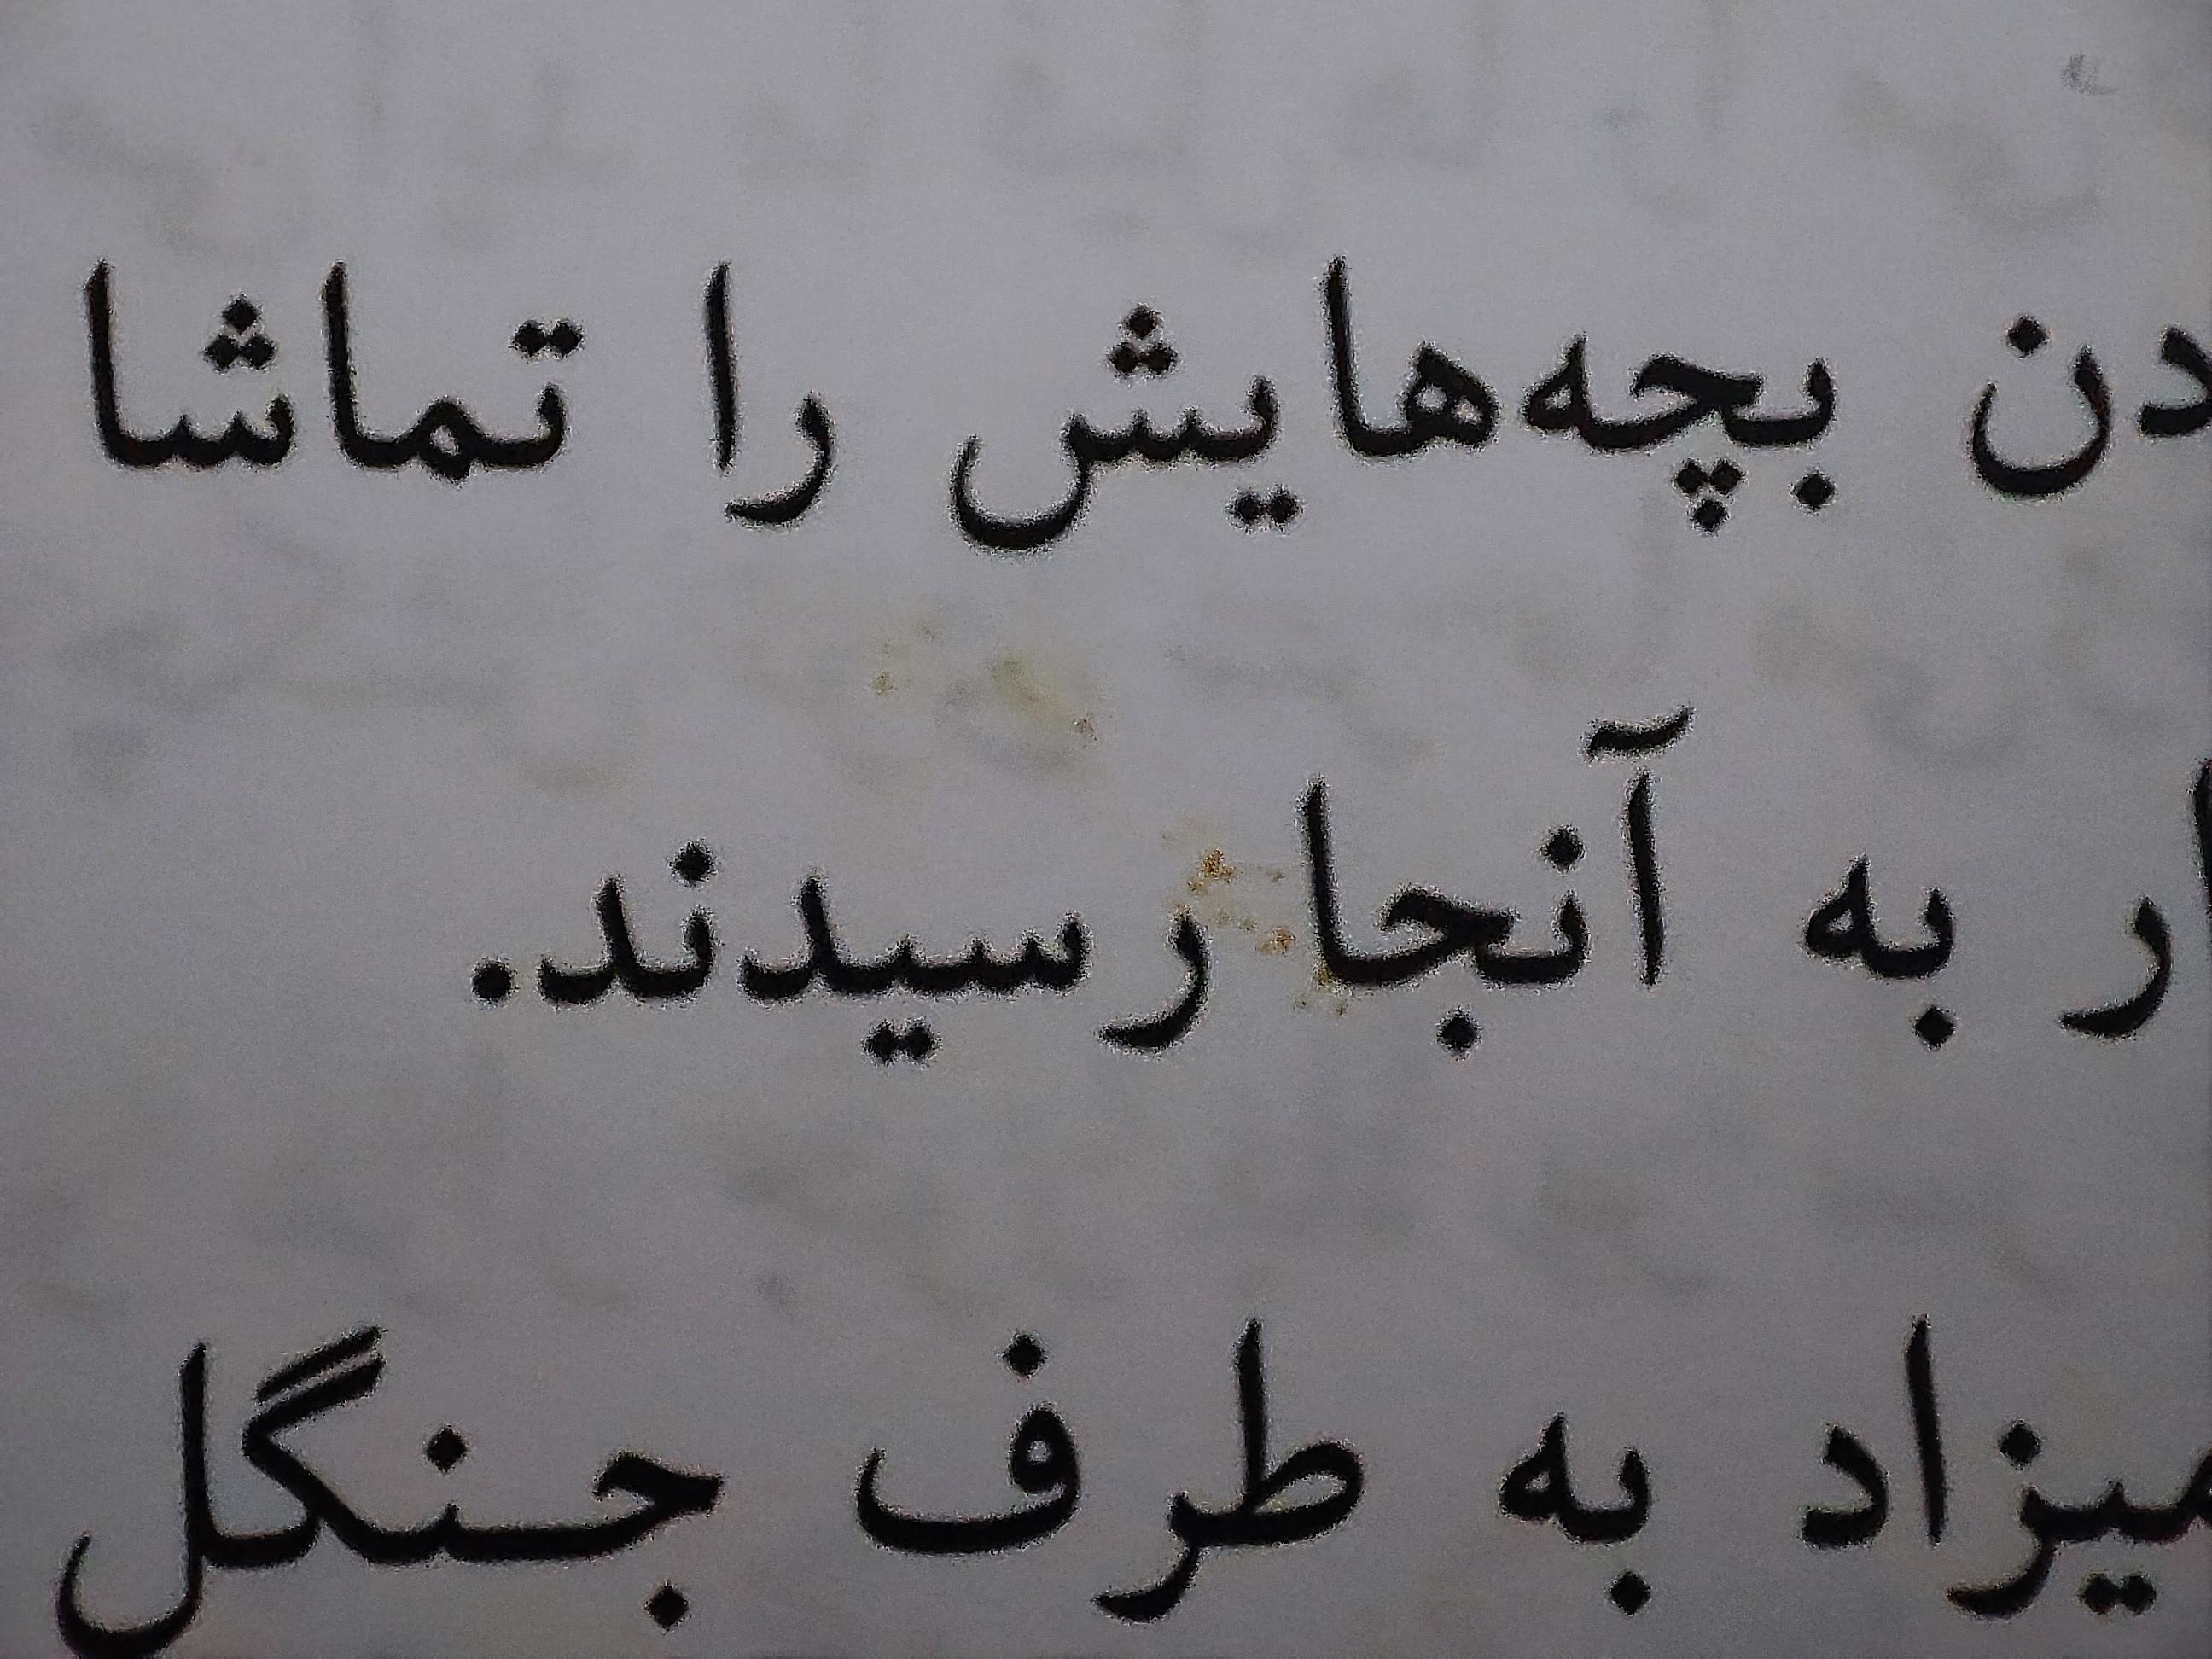 دن بچه‌هایش را تماشا
ار به آنجا رسیدند.
میزاد به طرف جنگل